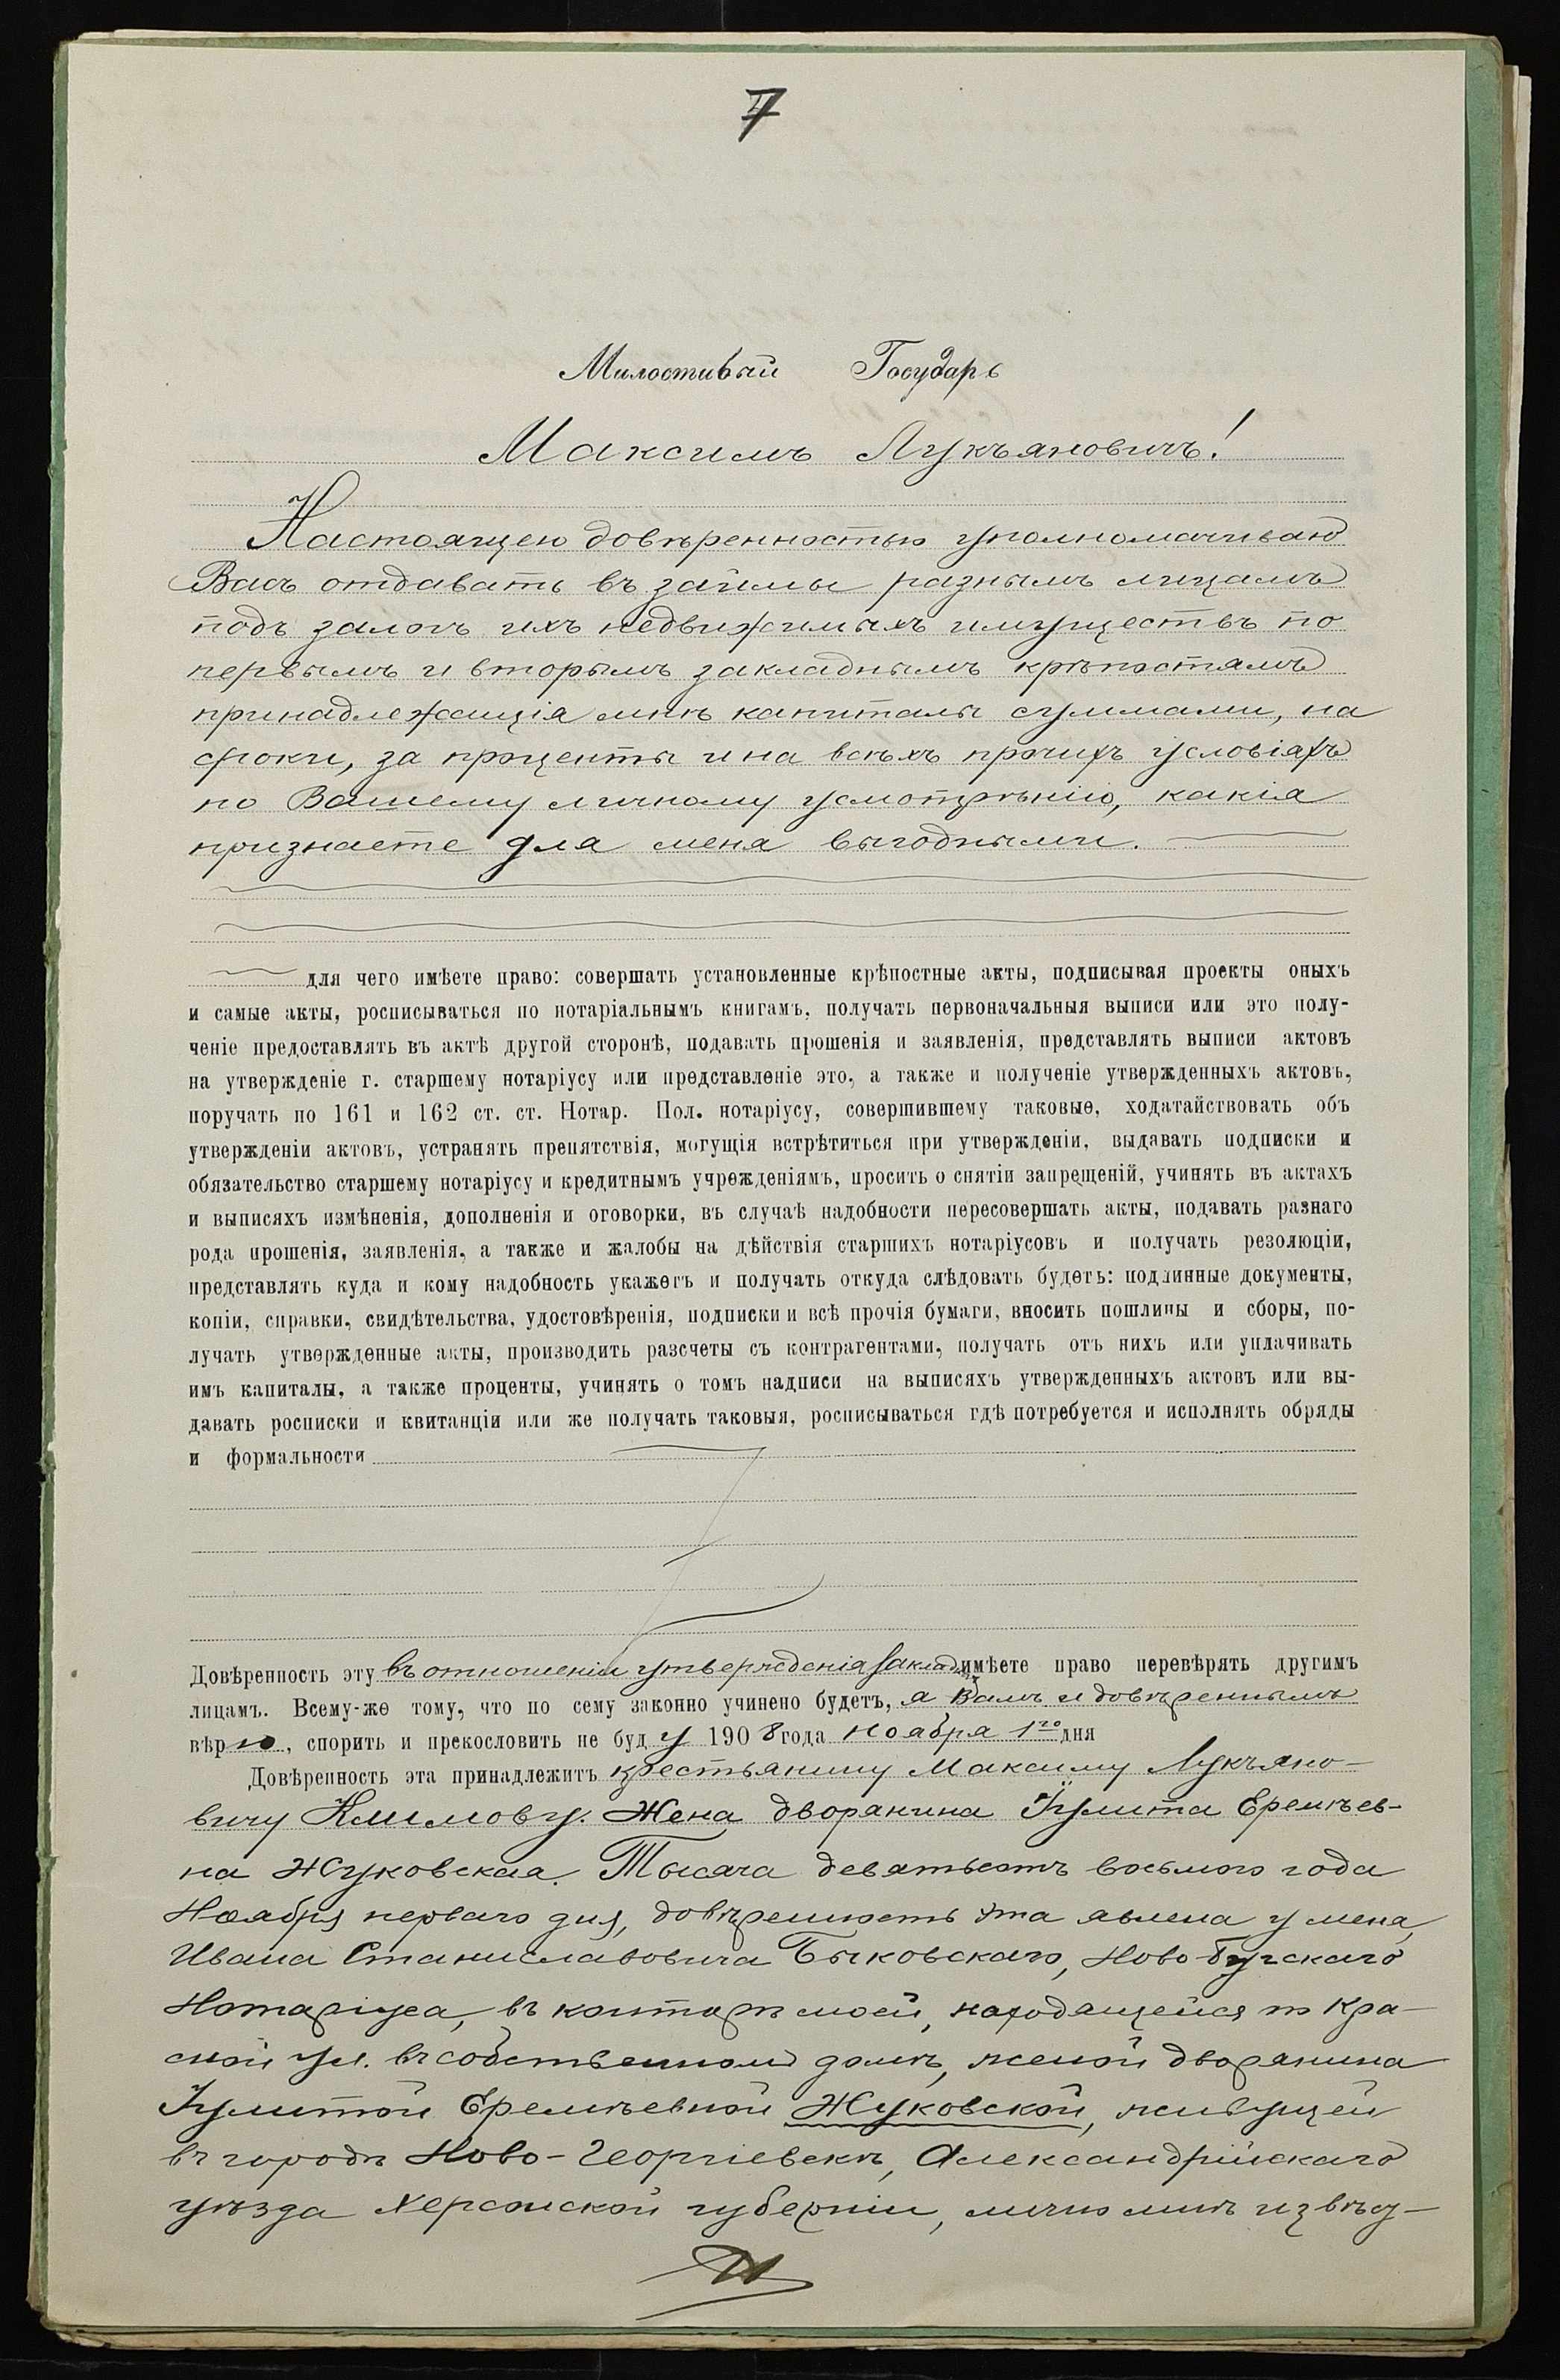 7
Милостивый Государь
Максимъ Лукъяновичъ!
Настоящею довѣренностью уполномачиваю
Васъ отдавать въ займы разнымъ лицамъ
подъ залогъ ихъ недвижимыхъ имуществъ по
первымъ и вторымъ закладнымъ крѣпостямъ
принадлежащія мнѣ капиталы суммами, на
сроки, за проценты и на всѣхъ прочихъ условіяхъ
по Вашему личному усмотрѣнію, какія
признаете для меня выгодными.
для чего имѣете право: совершать установленные крѣпостные акты, подписывая проекты оныхъ
и самые акты, росписываться по нотаріальнымъ книгамъ, получать первоначальныя выписи или это полу-
ченіе предоставлять въ актѣ другой сторонѣ, подавать прошенія и заявленія, представлять выписи актовъ
на утвержденіе г. старшему нотаріусу или представленіе это, а также и полученіе утвержденныхъ актовъ,
поручать по 161 и 162 ст. ст. Нотар. Пол. нотаріусу, совершившему таковые, ходатайствовать объ
утвержденіи актовъ, устранять препятствія, могущія встрѣтиться при утвержденіи, выдавать подписки и
обязательство старшему нотаріусу и кредитнымъ учрежденіямъ, просить о снятіи запрещеній, учинять въ актахъ
и выписяхъ измѣненія, дополненія и оговорки, въ случаѣ надобности пересовершать акты, подавать разнаго
рода прошенія, заявленія, а также и жалобы на дѣйствія старшихъ нотаріусовъ и получать резолюціи,
представлять куда и кому надобность укажетъ и получать откуда слѣдовать будетъ: подлинные документы,
копіи, справки, свидѣтельства, удостовѣренія, подписки и всѣ прочія бумаги, вносить пошлины и сборы, по-
лучать утвержденные акты, производить разсчеты съ контрагентами, получать отъ нихъ или уплачивать
имъ капиталы, а также проценты, учинять о томъ надписи на выписяхъ утвержденныхъ актовъ или вы-
давать росписки и квитанціи или же получать таковыя, росписываться гдѣ потребуется и исполнять обряды
и формальности
Довѣренность эту въ отношеніи утвержденія заклад. имѣете право перевѣрять другимъ
лицамъ. Всему-же тому, что по сему законно учинено будетъ, я Вамъ и довѣреннымъ
вѣрю, спорить и прекословить не буду 1908 года Ноября 1го дня
Довѣренность эта принадлежитъ крестьянину Максиму Лукъяно-
вичу Климову. Жена дворянина Іулита Еремѣев-
на Жуковская. Тысяча девятьсотъ восьмого года
Ноября перваго дня, довѣренность эта явлена у меня,
Ивана Станиславовича Быковскаго, Ново-Бугскаго
Нотаріуса, въ конторѣ моей, находящейся по Кра-
сной ул. въ собственномъ домѣ, женой дворянина
Іулитой Еремѣевной Жуковской, живущей
въ городѣ Ново-Георгіевскѣ, Александрійскаго
уѣзда Херсонской губерніи, лично мнѣ извѣст-